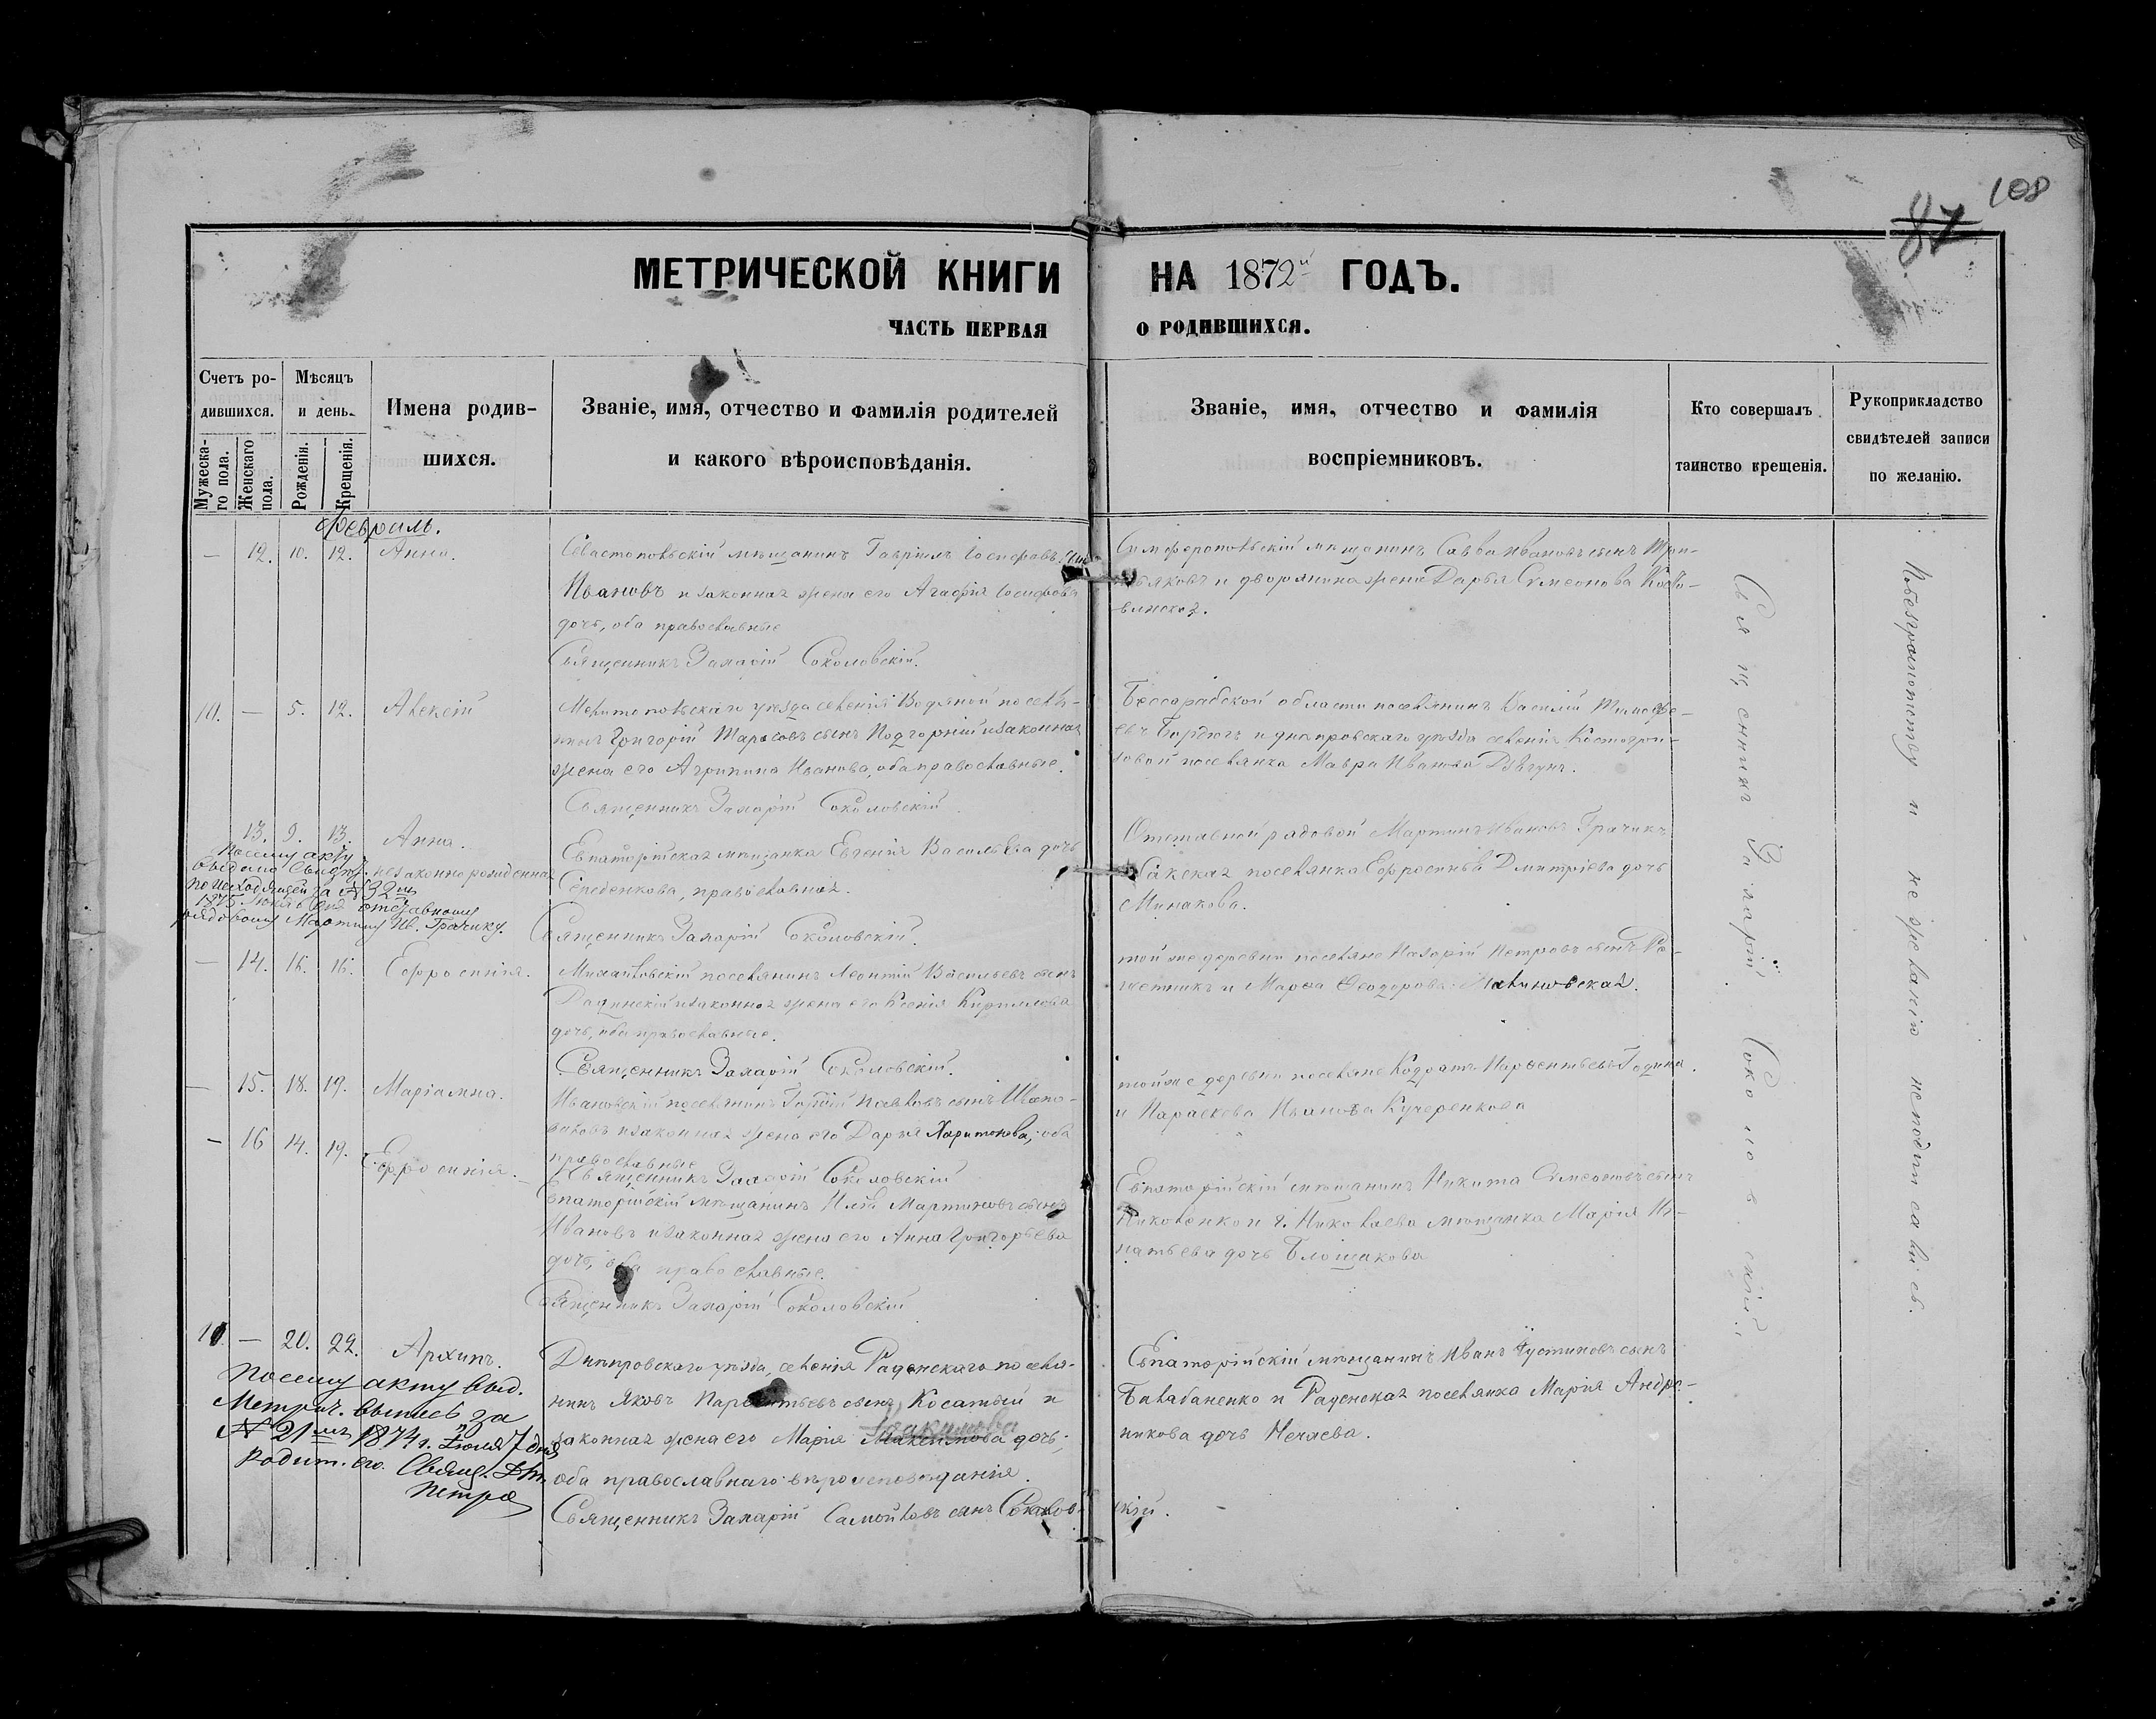 108
87
МЕТРИЧЕСКОЙ КНИГИ НА 1872й ГОДЪ.
ЧАСТЬ ПЕРВАЯ О РОДИВШИХСЯ.
Счетъ ро-
дившихся.
Мужеска-
го пола.
Женскаго
пола.
Мѣсяцъ
и день.
Рожденія.
Крещенія.
Имена родив-
шихся.
Званіе, имя, отчество и фамилія родителей
и какого вѣроисповѣданія.
Званіе, имя, отчество и фамилія
воспріемниковъ.
Кто совершалъ
таинство крещенія.
Рукоприкладство
свидѣтелей записи
по желанію.
Февраль.
— 12. 10. 12. Анна.
Севастопольскій мѣщанинъ Гавріилъ Іосифовъ сынъ
Ивановъ и законная жена его Агафія Іосифова
дочь, оба православные
Священникъ Захарій Соколовскій.
Симферопольскій мѣщанинъ Савва Ивановъ сынъ
и дворянина жена Дарья Симеонова
10. — 5. 12. Алексій
Мелитопольскаго уѣзда селенія Водяной поселя-
нинъ Григорій Тарасовъ сынъ Подгорній и законная
жена его Агрипина Иванова, оба православные.
Священникъ Захарій Соколовскій
Бессарабской области поселянинъ Василій Тимофе-
евъ и днѣпровскаго уѣзда селенія
поселянка Мавра Иванова
13. 9. 13. Анна.
незаконно рожденная
Евпаторійская мѣщанка Евгенія Васильева дочь
Середенкова, православная.
Священникъ Захарій Соколовскій.
Отставной рядовой Мартинъ Ивановъ Грачикъ
и Сакская поселянка Ефросинья Дмитріева дочь
Минакова.
По сему акту
выдано Свидѣт.
по исходящей за № 32 м
1875 отставному
рядовому Мартину Ив. Грачику.
— 14. 16. 16. Ефросинія.
Михайловскій поселянинъ Леонтій Васильевъ сынъ
и законная жена его Ксенія Кирилова
дочь, оба православные.
Священникъ Захарій Соколовскій.
той же деревни поселяне Назарій Петровъ сынъ Ре-
шетникъ и Марфа Феодорова
— 15. 18. 19. Маріамна.
Ивановскій поселянинъ Павловъ сынъ Шапо-
валовъ и законная жена его Дарья Харитонова, оба
православные
Священникъ Захарій Соколовскій
той же деревни поселяне Кодратъ Парфентьевъ Година
и Параскева Иванова Кучеренкова
— 16 14. 19. Ефросинія.
Евпаторійскій мѣщанинъ Илья Мартиновъ сынъ
Ивановъ и законная жена его Анна Григорьева
дочь, оба православные.
Священникъ Захарій Соколовскій
Евпаторійскій мѣщанинъ Никита Симеоновъ сынъ
и г. Николаева мѣщанка Марія Иг-
натьева дочь
11. — 20. 22. Архипъ.
Днѣпровскаго уѣзда, селенія Раденскаго поселя-
нинъ Яковъ Парфентьевъ сынъ Косатый и
законная жена его Марія дочь;
оба православнаго вѣроисповѣданія.
Священникъ Захарій Самойловъ сынъ Соколов-
скій.
Евпаторійскій мѣщанинъ Иванъ Іустиновъ сынъ
Балабаненко и Раденская поселянка Марія Андре-
никова дочь Нечаева.
По сему акту выд.
Метрич. выпись за
№ 21 мъ 1874 г. Іюля 7 дня
Родит. его. Свящ.
Петра
Священникъ Захарій Соколовскій.
По безграмотству и не желанію не подписались.